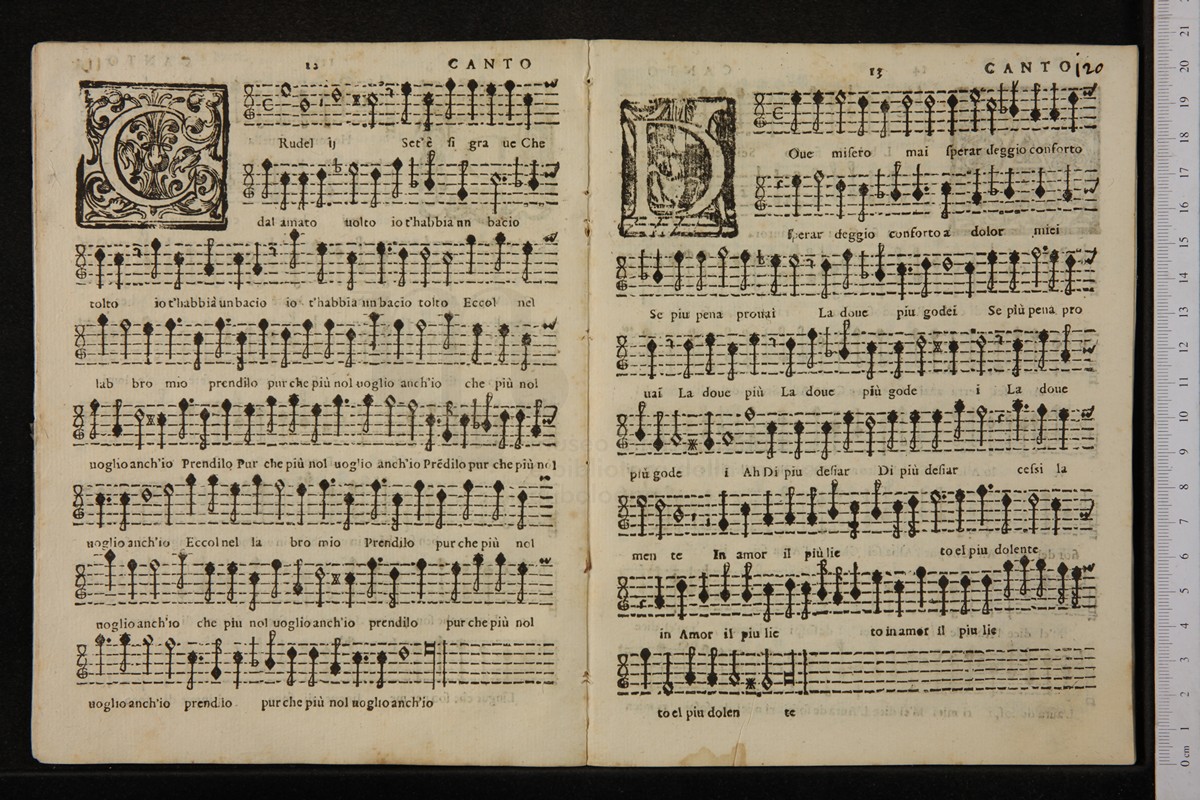 12 CANTO
C Rudel ij Set'è si gra ue Che
dal amato uolto io t'habbia un bacio
tolto io t'habbia un bacio io t'habbia un bacio tolto Eccol nel
lab bro mio prendilo pur che più nol uoglio anch'io che più nol
uoglio anch'io Prendilo Pur che più nol uoglio anch'io Prēdilo pur che più nol
uoglio anch'io Eccol nel la bro mio Prendilo pur che più nol
uoglio anch'io che piu nol uoglio anch'io prendilo pur che più nol
uoglio anch'io prend.io pur che più nol uoglio anch'io
13 CANTO 120
D Oue misero mai sperar deggio conforto
sperar deggio conforto a dolor miei
Se piu pena prouai La doue piu godei Se più pena pro
uai La doue più La doue più gode i La doue
più gode i Ah Di piu desiar Di più desiar cessi la
men te In amor il più lie to el piu dolente
in Amor il piu lie to in amor il piu lie
to el piu dolen te
0 cm 1 2 3 4 5 6 7 8 9 10 11 12 13 14 15 16 17 18 19 20 21